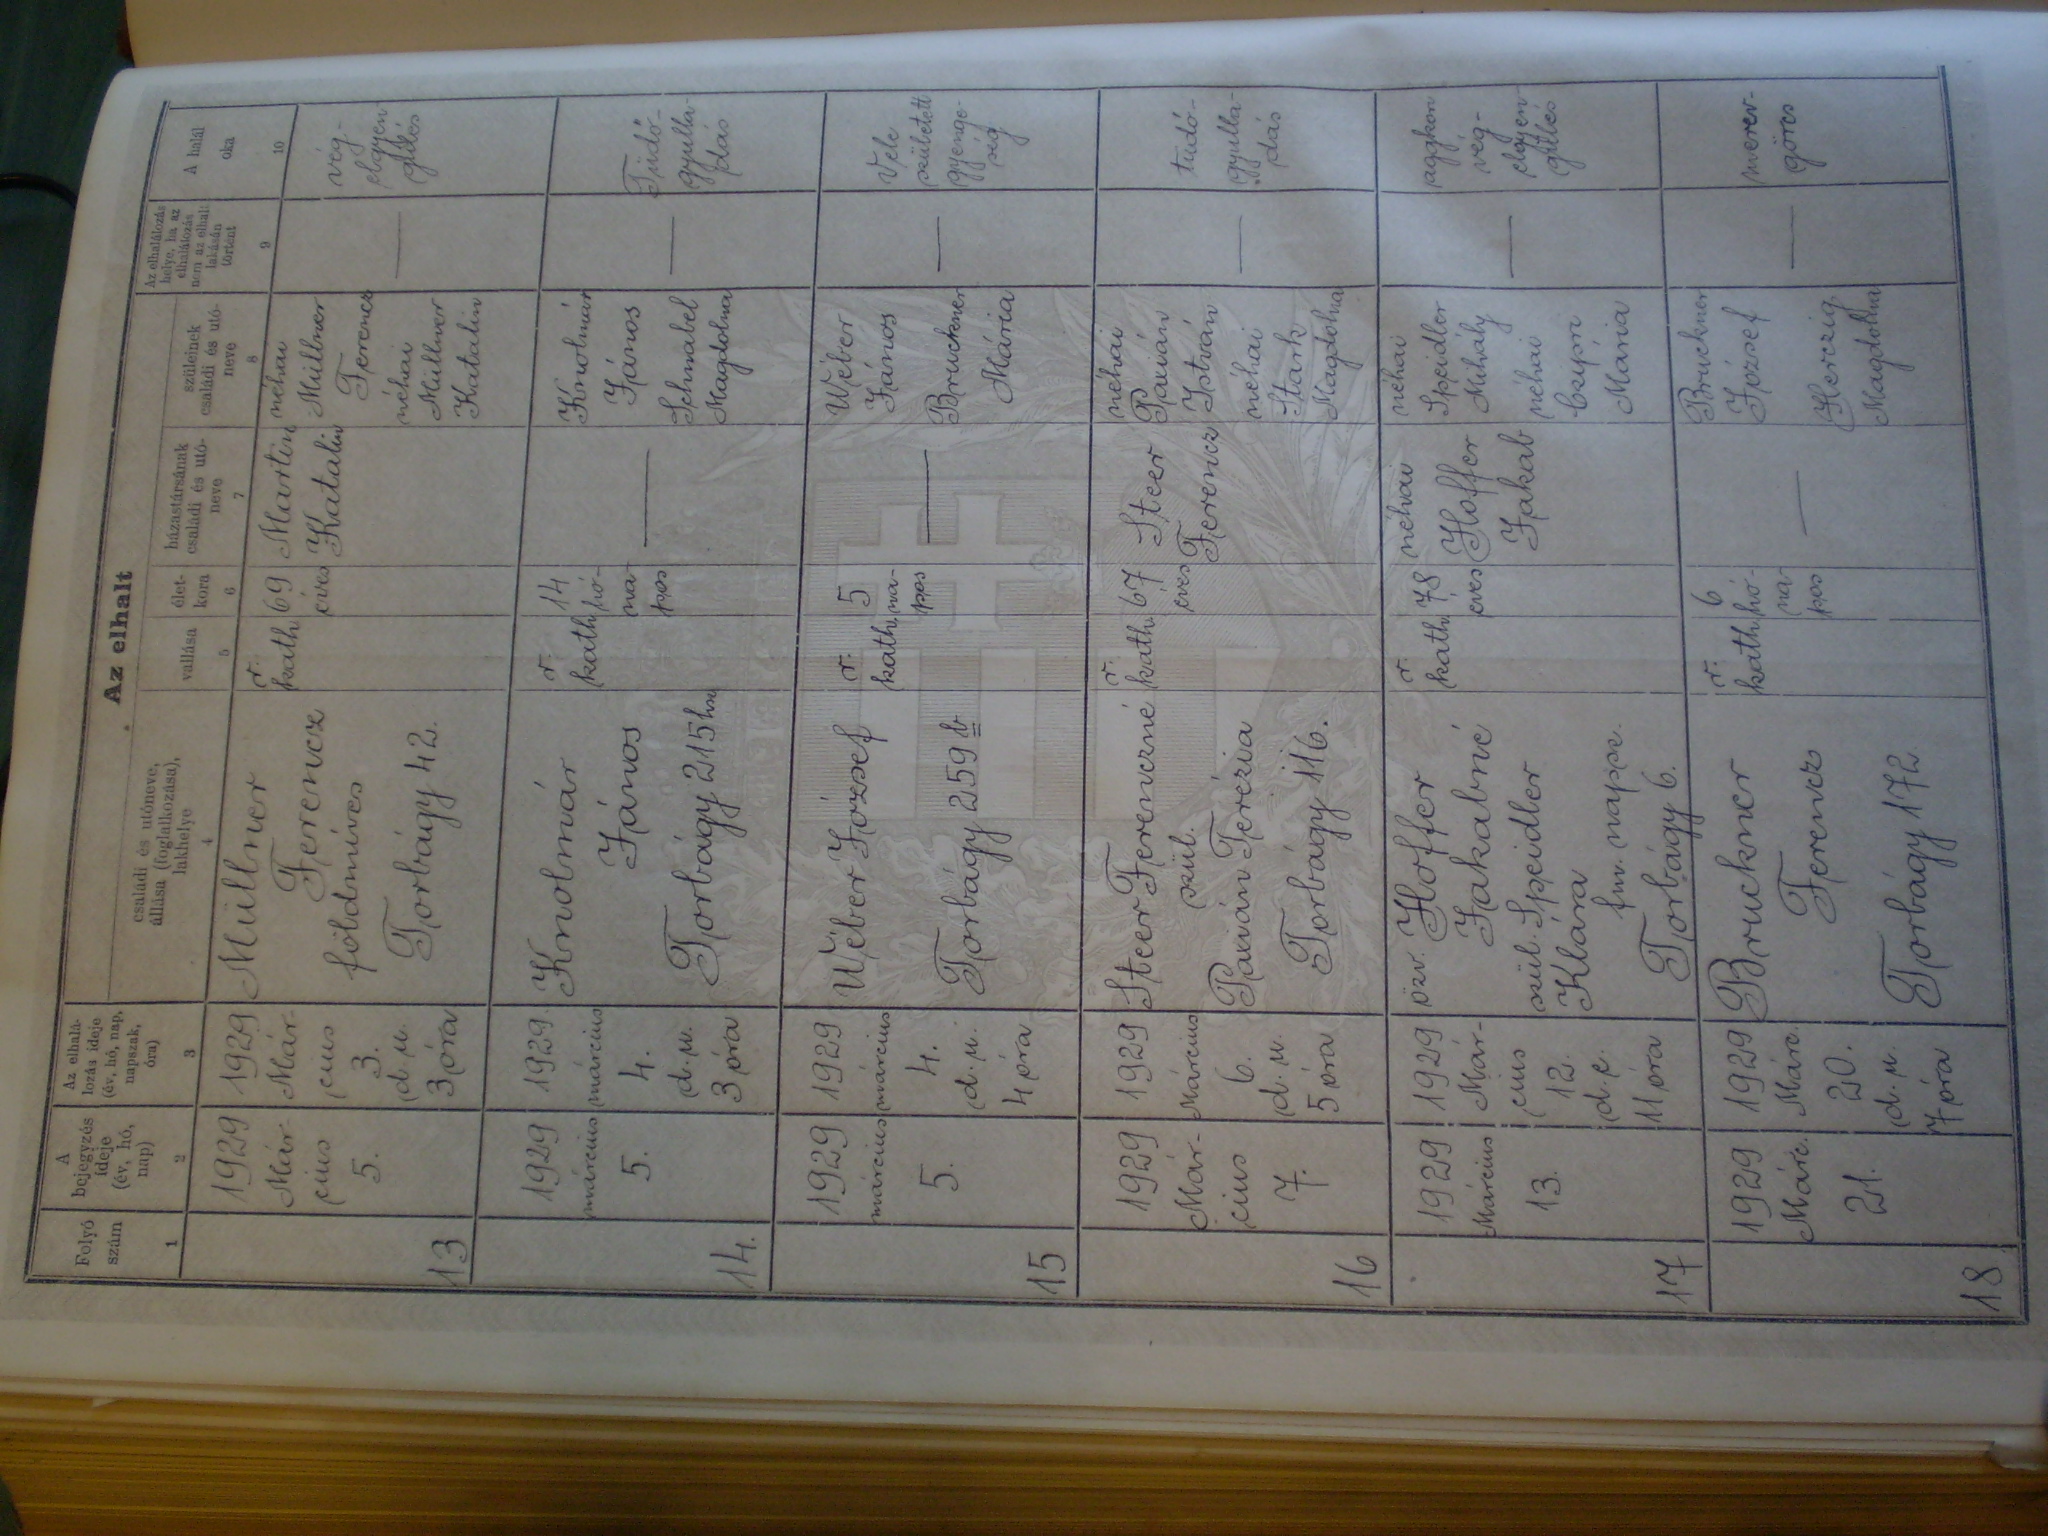 Az elhalt
Folyó
szám
A
bejegyzés
ideje
(év, hó,
nap)
Az elhalá-
lozás ideje
(év, hó, nap,
napszak,
óra)
családi és utóneve,
állása (foglalkozása),
lakhelye
vallása
élet-
kora
házastársának
családi és utó-
neve
szüleinek
családi és utó-
neve
Az elhalálozás
helye, ha az
elhalálozás
nem az elhalt
lakásán
történt
A halál
oka
1
2
3
4
5
6
7
8
9
10
13
1929
Már-
cius
5.
1929
Már-
cius
3.
d. u.
3 óra
Müllner
Ferencz
földmíves
Torbágy 42.
r.
kath
69
éves
Martin
Katalin
néhai
Müllner
Ferencz
néhai
Müllner
Katalin
—
vég-
elgyen
gülés
14.
1929
március
5.
1929.
március
4.
d. u.
3 óra
Knolmár
János
Torbágy 215 hsz
r.
kath
14
hó-
na-
pos
—
Knolmár
János
Schnabel
Magdolna
—
Tüdő-
gyulla-
dás
15
1929
március
5.
1929
március
4.
d. u.
4 óra
Wéber József
Torbágy 259 b
r.
kath.
5
na-
pos
—
Wéber
János
Bruckner
Mária
—
Vele
született
gyenge-
ség
16
1929
Már-
cius
7.
1929
Március
6.
d. u.
5 óra
Steer Ferenczné
szül.
Paxián Terézia
Torbágy 116.
r.
kath.
67
éves
Steer
Ferencz
néhai
Paxián
István
néhai
Stark
Magdolna
—
tüdő-
gyulla-
dás
17
1929
Március
13.
1929
Már-
cius
12.
d. e.
11 óra
özv. Hoffer
Jakabné
szül. Speidler
Klára
fmv. napsz.
Torbágy 6.
r.
kath
78
éves
néhai
Hoffer
Jakab
néhai
Speidler
Mihály
néhai
Czipri
Mária
—
aggkori
vég-
elgyen
gülés
18
1929
Márc.
21.
1929
Márc.
20.
d. u.
7 óra
Bruckner
Ferencz
Torbágy 172
r.
kath
6
hó-
na-
pos
—
Bruckner
József
Herczig
Magdolna
—
görcs